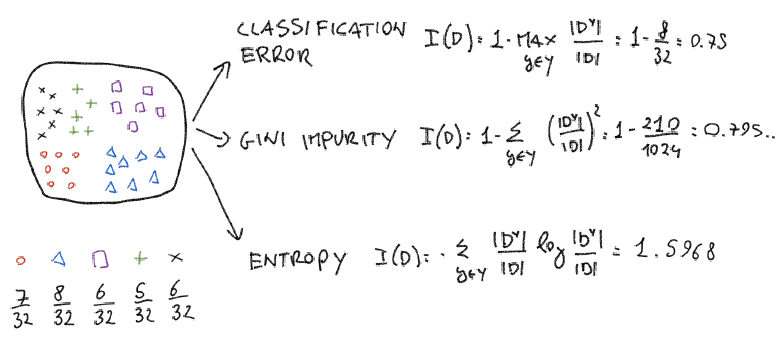 CLASSIFICATION ERROR I(D) = 1 - MAX y∈Y |Dʸ|/|D| = 1 - 8/32 = 0.75
GINI IMPURITY I(D) = 1 - Σ y∈Y (|Dʸ|/|D|)² = 1 - 210/1024 = 0.795..
ENTROPY I(D) = - Σ y∈Y |Dʸ|/|D| log |Dʸ|/|D| = 1.5968
7/32 8/32 6/32 5/32 6/32